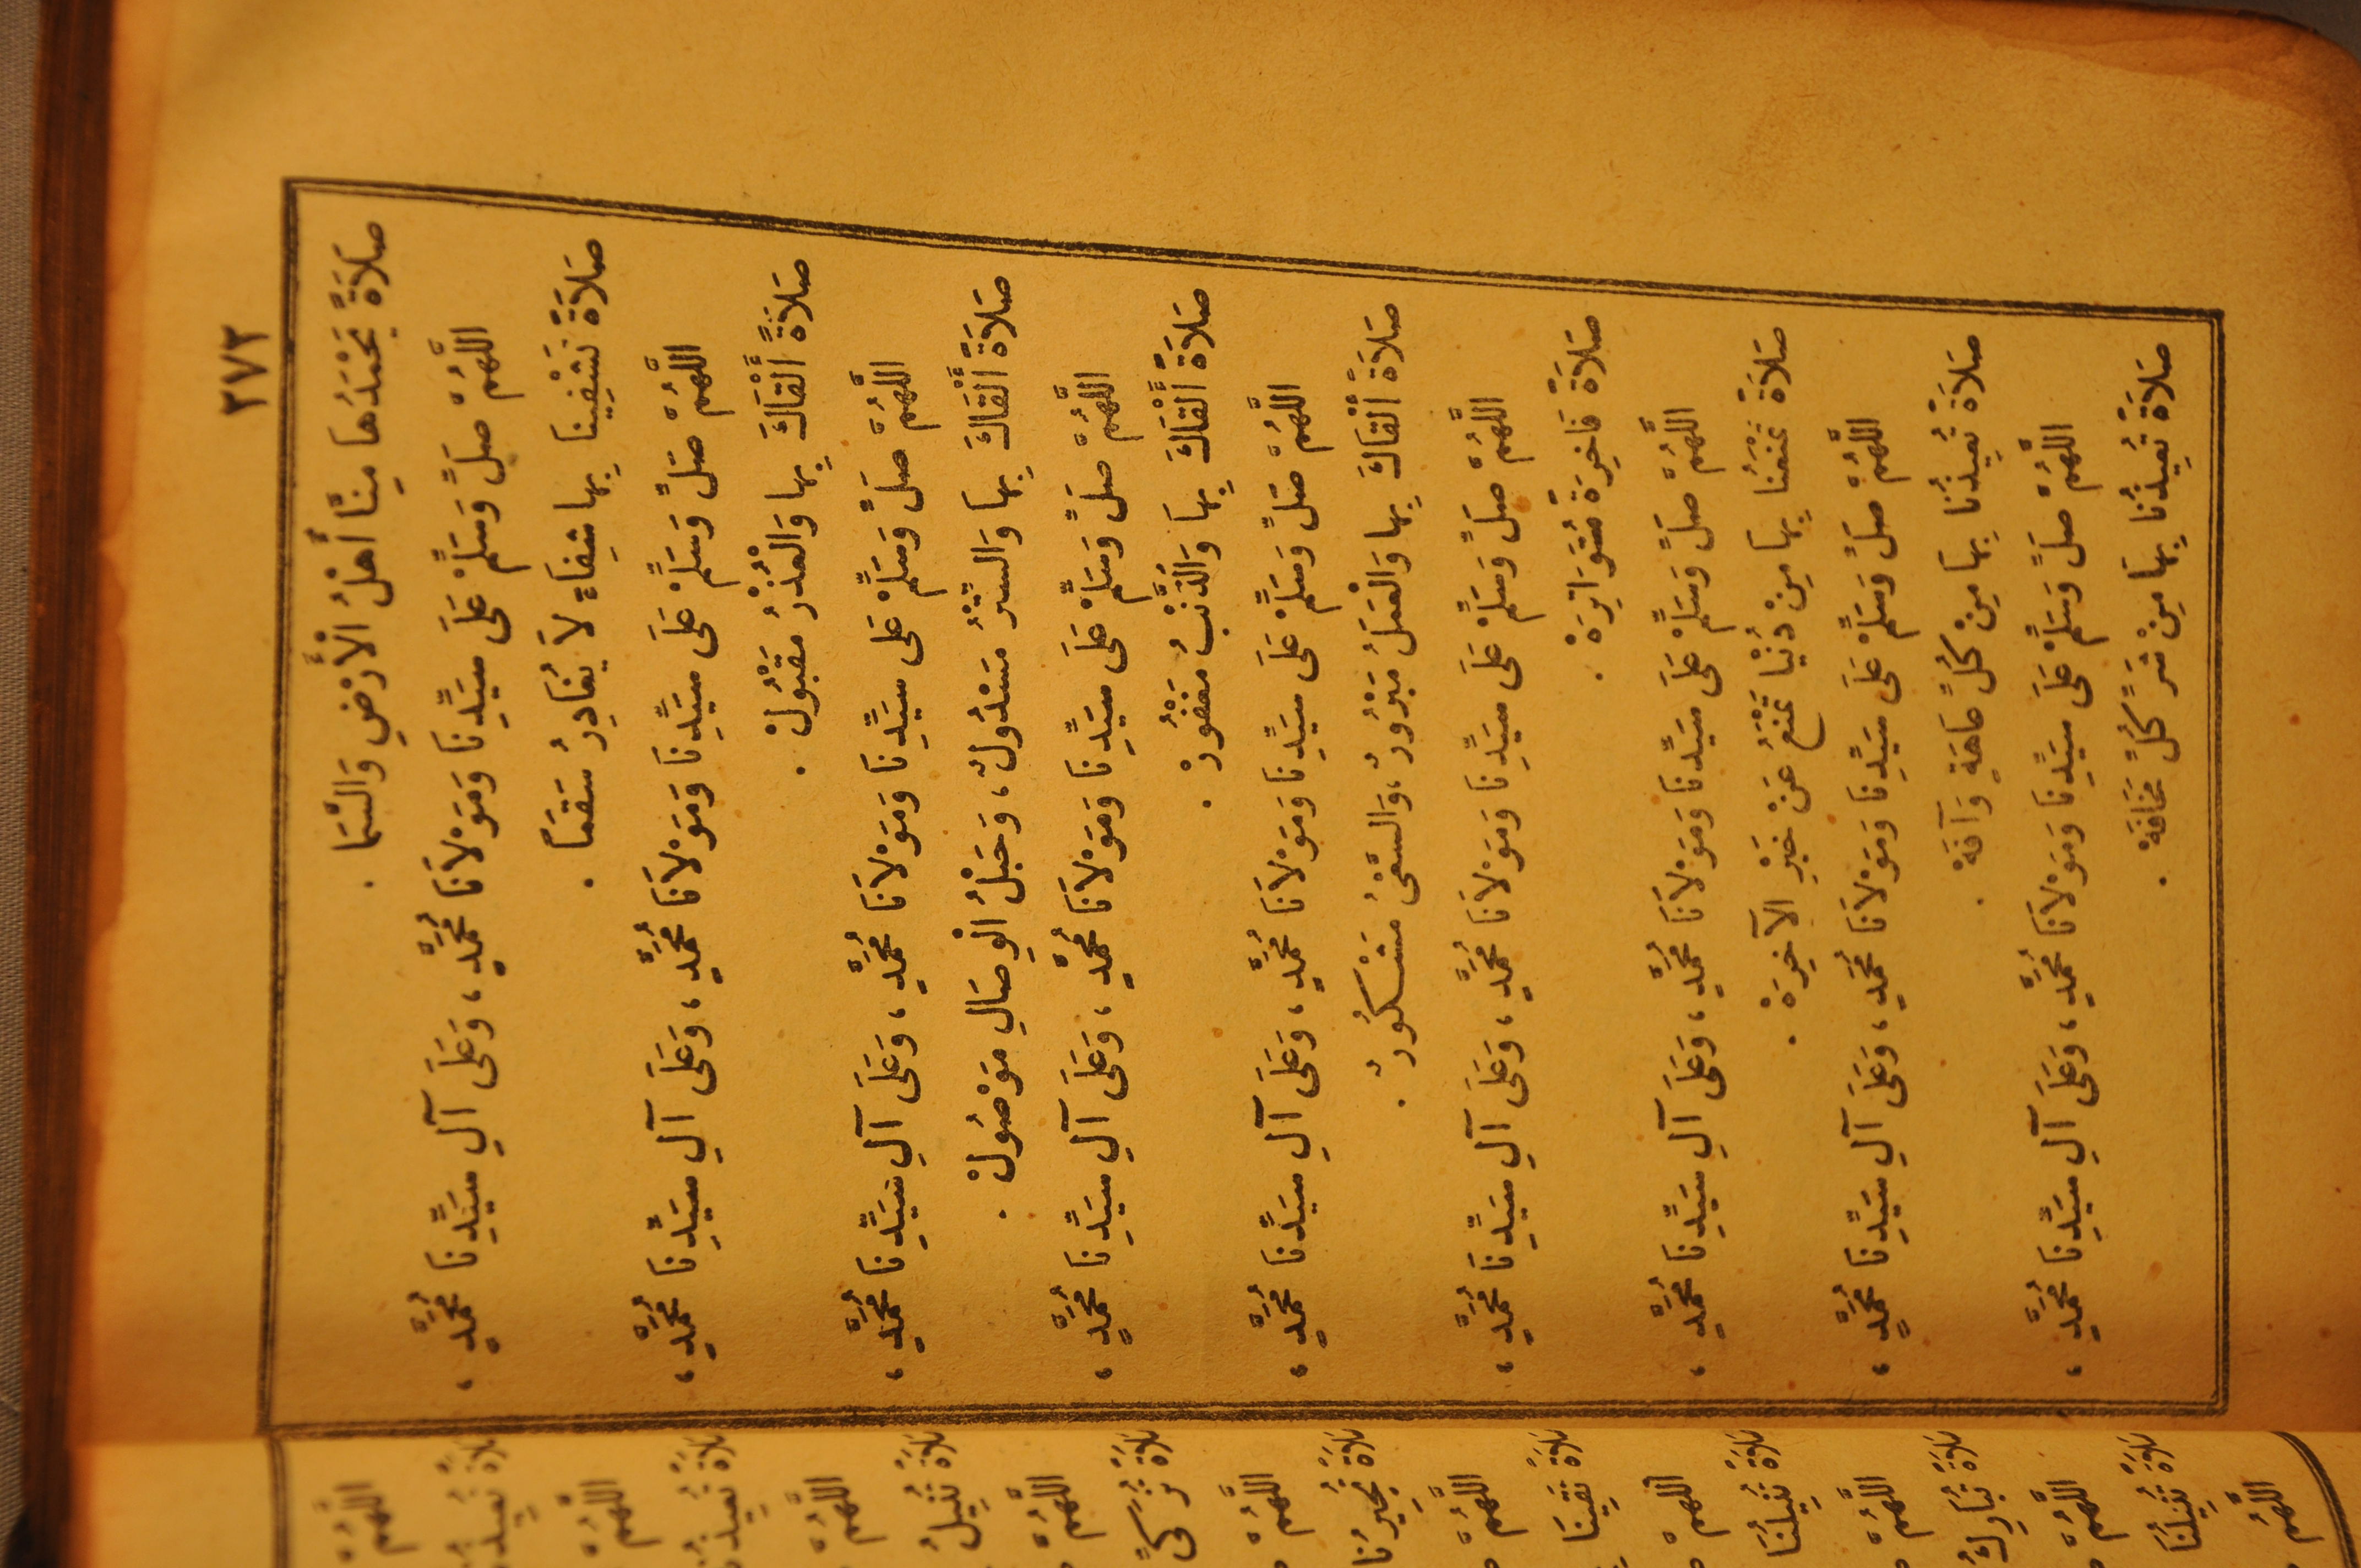 ٢٧٣
صَلَاةً يَحْمَدُهَا مِنَّا أَهْلُ الْأَرْضِ وَالسَّمَا .
اللَّهُمَّ صَلِّ وَسَلِّمْ عَلَى سَيِّدِنَا وَمَوْلَانَا مُحَمَّدٍ ، وَعَلَى آلِ سَيِّدِنَا مُحَمَّدٍ ،
صَلَاةً تَشْفِينَا بِهَا شِفَاءً لَا يُغَادِرُ سَقَمًا .
اللَّهُمَّ صَلِّ وَسَلِّمْ عَلَى سَيِّدِنَا وَمَوْلَانَا مُحَمَّدٍ ، وَعَلَى آلِ سَيِّدِنَا مُحَمَّدٍ ،
صَلَاةً أَلْقَاكَ بِهَا وَالْعُذْرُ مَقْبُولْ .
اللَّهُمَّ صَلِّ وَسَلِّمْ عَلَى سَيِّدِنَا وَمَوْلَانَا مُحَمَّدٍ ، وَعَلَى آلِ سَيِّدِنَا مُحَمَّدٍ ،
صَلَاةً أَلْقَاكَ بِهَا وَالسِّتْرُ مَسْدُولٌ ، وَحَبْلُ الْوِصَالِ مَوْصُولْ .
اللَّهُمَّ صَلِّ وَسَلِّمْ عَلَى سَيِّدِنَا وَمَوْلَانَا مُحَمَّدٍ ، وَعَلَى آلِ سَيِّدِنَا مُحَمَّدٍ ،
صَلَاةً أَلْقَاكَ بِهَا وَالذَّنْبُ مَغْفُورْ .
اللَّهُمَّ صَلِّ وَسَلِّمْ عَلَى سَيِّدِنَا وَمَوْلَانَا مُحَمَّدٍ ، وَعَلَى آلِ سَيِّدِنَا مُحَمَّدٍ ،
صَلَاةً أَلْقَاكَ بِهَا وَالْعَمَلُ مَبْرُورٌ ، وَالسَّعْىُ مَشْكُورٌ .
اللَّهُمَّ صَلِّ وَسَلِّمْ عَلَى سَيِّدِنَا وَمَوْلَانَا مُحَمَّدٍ ، وَعَلَى آلِ سَيِّدِنَا مُحَمَّدٍ ،
صَلَاةً فَاخِرَةً مُتَوَاتِرَهْ .
اللَّهُمَّ صَلِّ وَسَلِّمْ عَلَى سَيِّدِنَا وَمَوْلَانَا مُحَمَّدٍ ، وَعَلَى آلِ سَيِّدِنَا مُحَمَّدٍ ،
صَلَاةً تَمْنَعُنَا بِهَا مِنْ دُنْيَا تَمْنَعُ عَنْ خَيْرِ الْآخِرَهْ .
اللَّهُمَّ صَلِّ وَسَلِّمْ عَلَى سَيِّدِنَا وَمَوْلَانَا مُحَمَّدٍ ، وَعَلَى آلِ سَيِّدِنَا مُحَمَّدٍ ،
صَلَاةً تُعِيذُنَا بِهَا مِنْ كُلِّ عَاهَةٍ وَآفَهْ .
اللَّهُمَّ صَلِّ وَسَلِّمْ عَلَى سَيِّدِنَا وَمَوْلَانَا مُحَمَّدٍ ، وَعَلَى آلِ سَيِّدِنَا مُحَمَّدٍ ،
صَلَاةً تُعِيذُنَا بِهَا مِنْ شَرِّ كُلِّ مَخَافَهْ .
اللَّهُمَّ
اللَّهُمَّ
اللَّهُمَّ
اللَّهُمَّ
اللَّهُمَّ
اللَّهُمَّ
اللَّهُمَّ
اللَّهُمَّ
اللَّهُمَّ
اللَّهُمَّ